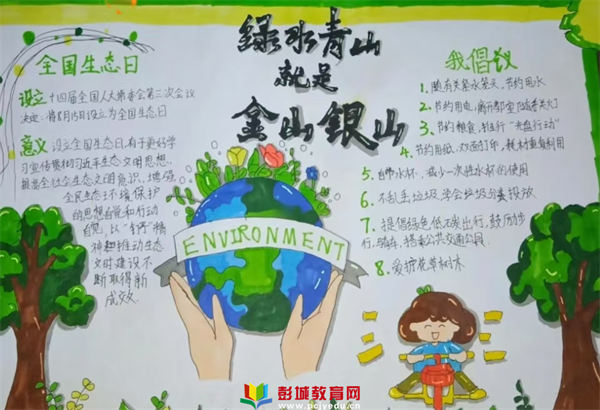 绿水青山
就是
金山銀山
全国生态日
设立:十四届全国人大常委会第三次会议
决定:将8月15日设立为全国生态日
意义:设立全国生态日,有于更好学
习宣传贯和习近平生态文明思想,
提高全社会生态文明意识,增强
全民生态环境保护
的思想自觉和行动
自觉,以"钉"精
神和推动生态
文明建设不
断取得新
成效
ENVIRONMENT
我倡议
1.随有关紧水笼头,节约用水
2.节约用电,离开教室
3.节约粮食,推行"光盘行动"
4.节约用纸,双面打印,耗材重复利用
5.自带水杯,减少一次性水杯的使用
6.不乱丢垃圾,学会垃圾分类投放
7.提倡绿色低碳出行,鼓励步
行,骑车,搭乘公共交通公具
8.爱护花草树木
彭城教育网
www.pcjyedu.cn